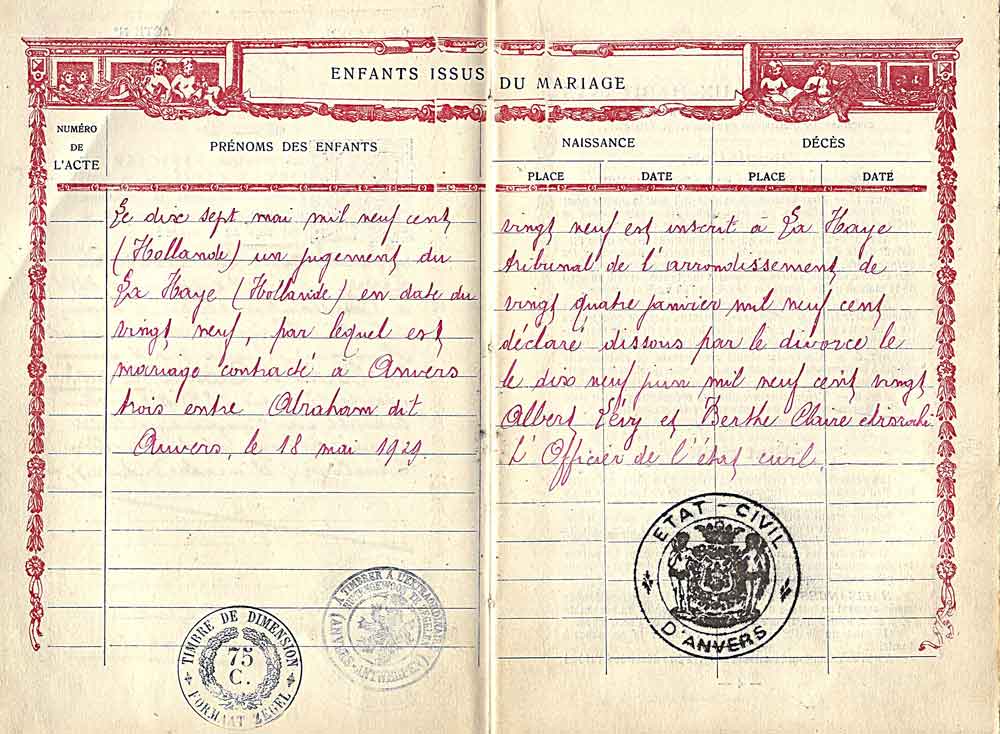 ENFANTS ISSUS DU MARIAGE
NUMÉRO DE L'ACTE
PRÉNOMS DES ENFANTS
NAISSANCE
DÉCÈS
PLACE
DATE
PLACE
DATE
Le dix sept mai mil neuf cent vingt neuf est inscrit à La Haye
(Hollande) un jugement du tribunal de l'arrondissement de
La Haye (Hollande) en date du vingt quatre janvier mil neuf cent
vingt neuf, par lequel est déclaré dissous par le divorce le
mariage contracté à Anvers le dix neuf juin mil neuf cent vingt
trois entre Abraham dit Albert Lévy et Berthe Claire
Anvers, le 18 mai 1929. L'Officier de l'état civil.
ETAT-CIVIL
D'ANVERS
A TIMBRER À L'EXTRAORDINAIRE
(ANVERS-ANTWERPEN)
TIMBRE DE DIMENSION
75
C.
FORMAAT ZEGEL